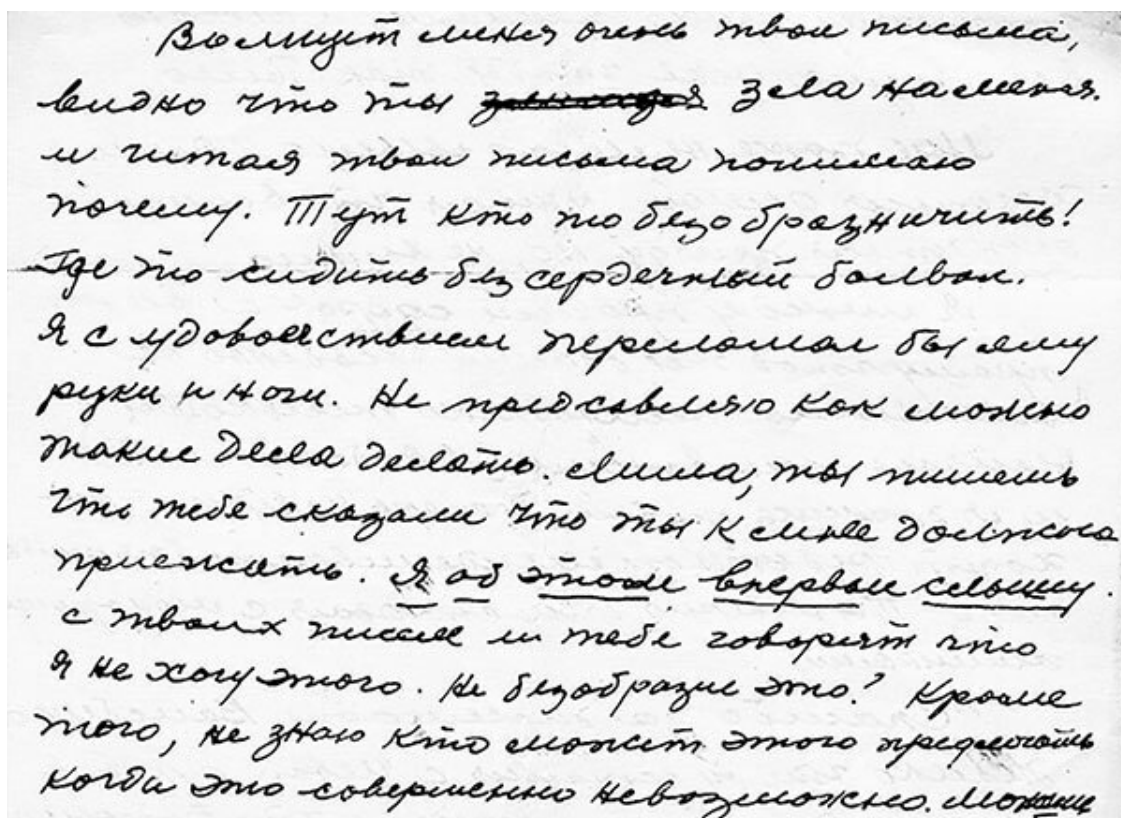 Волнует меня очень твои письма,
видно что ты зла на меня.
и читая твои письма понимаю
почему. Тут кто то безобразничить!
Где то сидить без сердечный болван.
Я с удовольствием переломал бы ему
руки и ноги. Не представляю как можно
такие дела делать. Мила, ты пишешь
что тебе сказали что ты к мне должна
приежать. Я об этом впервые слышу.
с твоих писем и тебе говорят что
я не хочу этого. Не безобразие это? Кроме
того, не знаю кто может этого предлогать
когда это совершенно невозможно.